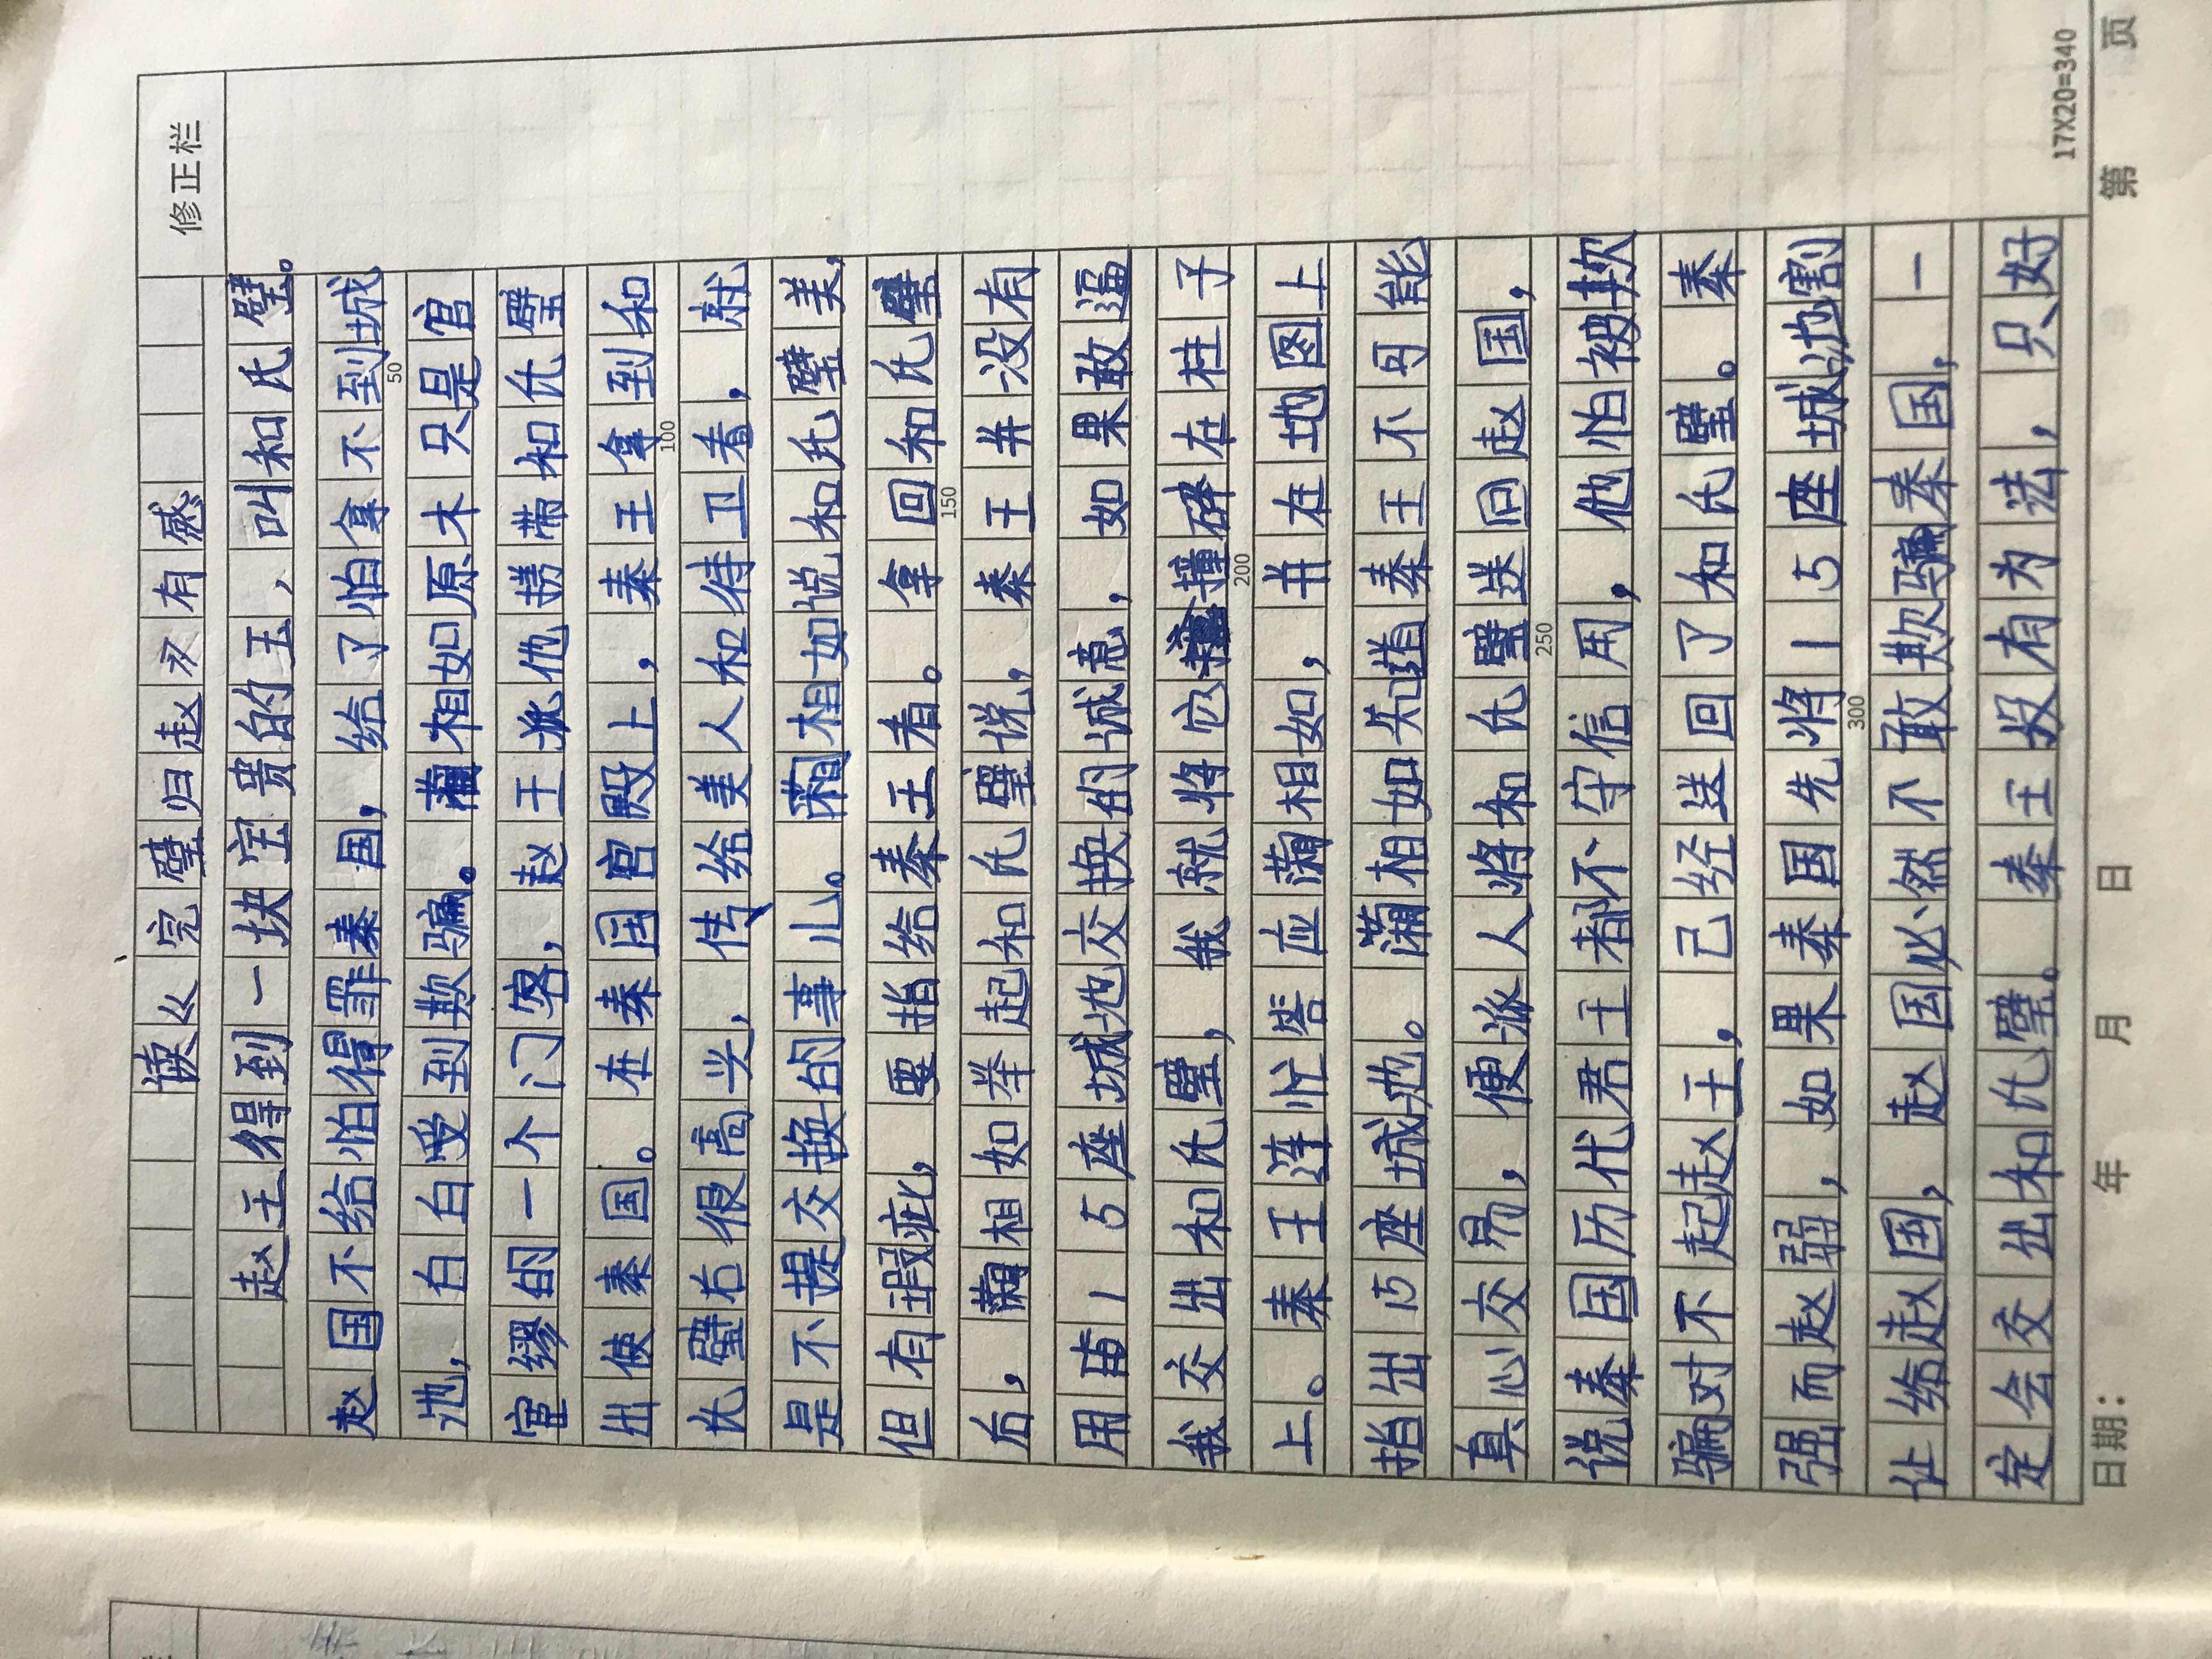 修正栏
读《完璧归赵》有感
赵王得到一块宝贵的玉,叫和氏璧。
赵国不给怕得罪秦国,给了怕拿不到城
池,白白受到欺骗。蔺相如原本只是官
宦缪的一个门客,赵王派他携带和氏璧
出使秦国。在秦国宫殿上,秦王拿到和
氏璧右很高兴,传给美人和侍卫看,就
是不提交换的事儿。蔺相如说和氏璧美,
但有瑕疵,要指给秦王看。拿回和氏璧
后,蔺相如举起和氏璧说,秦王并没有
用 15座城池交换的诚意,如果敢逼
我交出和氏璧,我就将它撞碎在柱子
上。秦王连忙答应蔺相如,并在地图上
指出15座城池。蔺相如知道秦王不可能
真心交易,便派人将和氏璧送回赵国,
说秦国历代君王都不守信用,他怕被欺
骗对不起赵王,已经送回了和氏璧。秦
强而赵弱,如果秦国先将15座城池割
让给赵国,赵国必然不敢欺骗秦国,一
定会交出和氏璧。秦王没有办法,只好
50
100
150
200
250
300
17X20=340
日期: 年 月 日 第 页